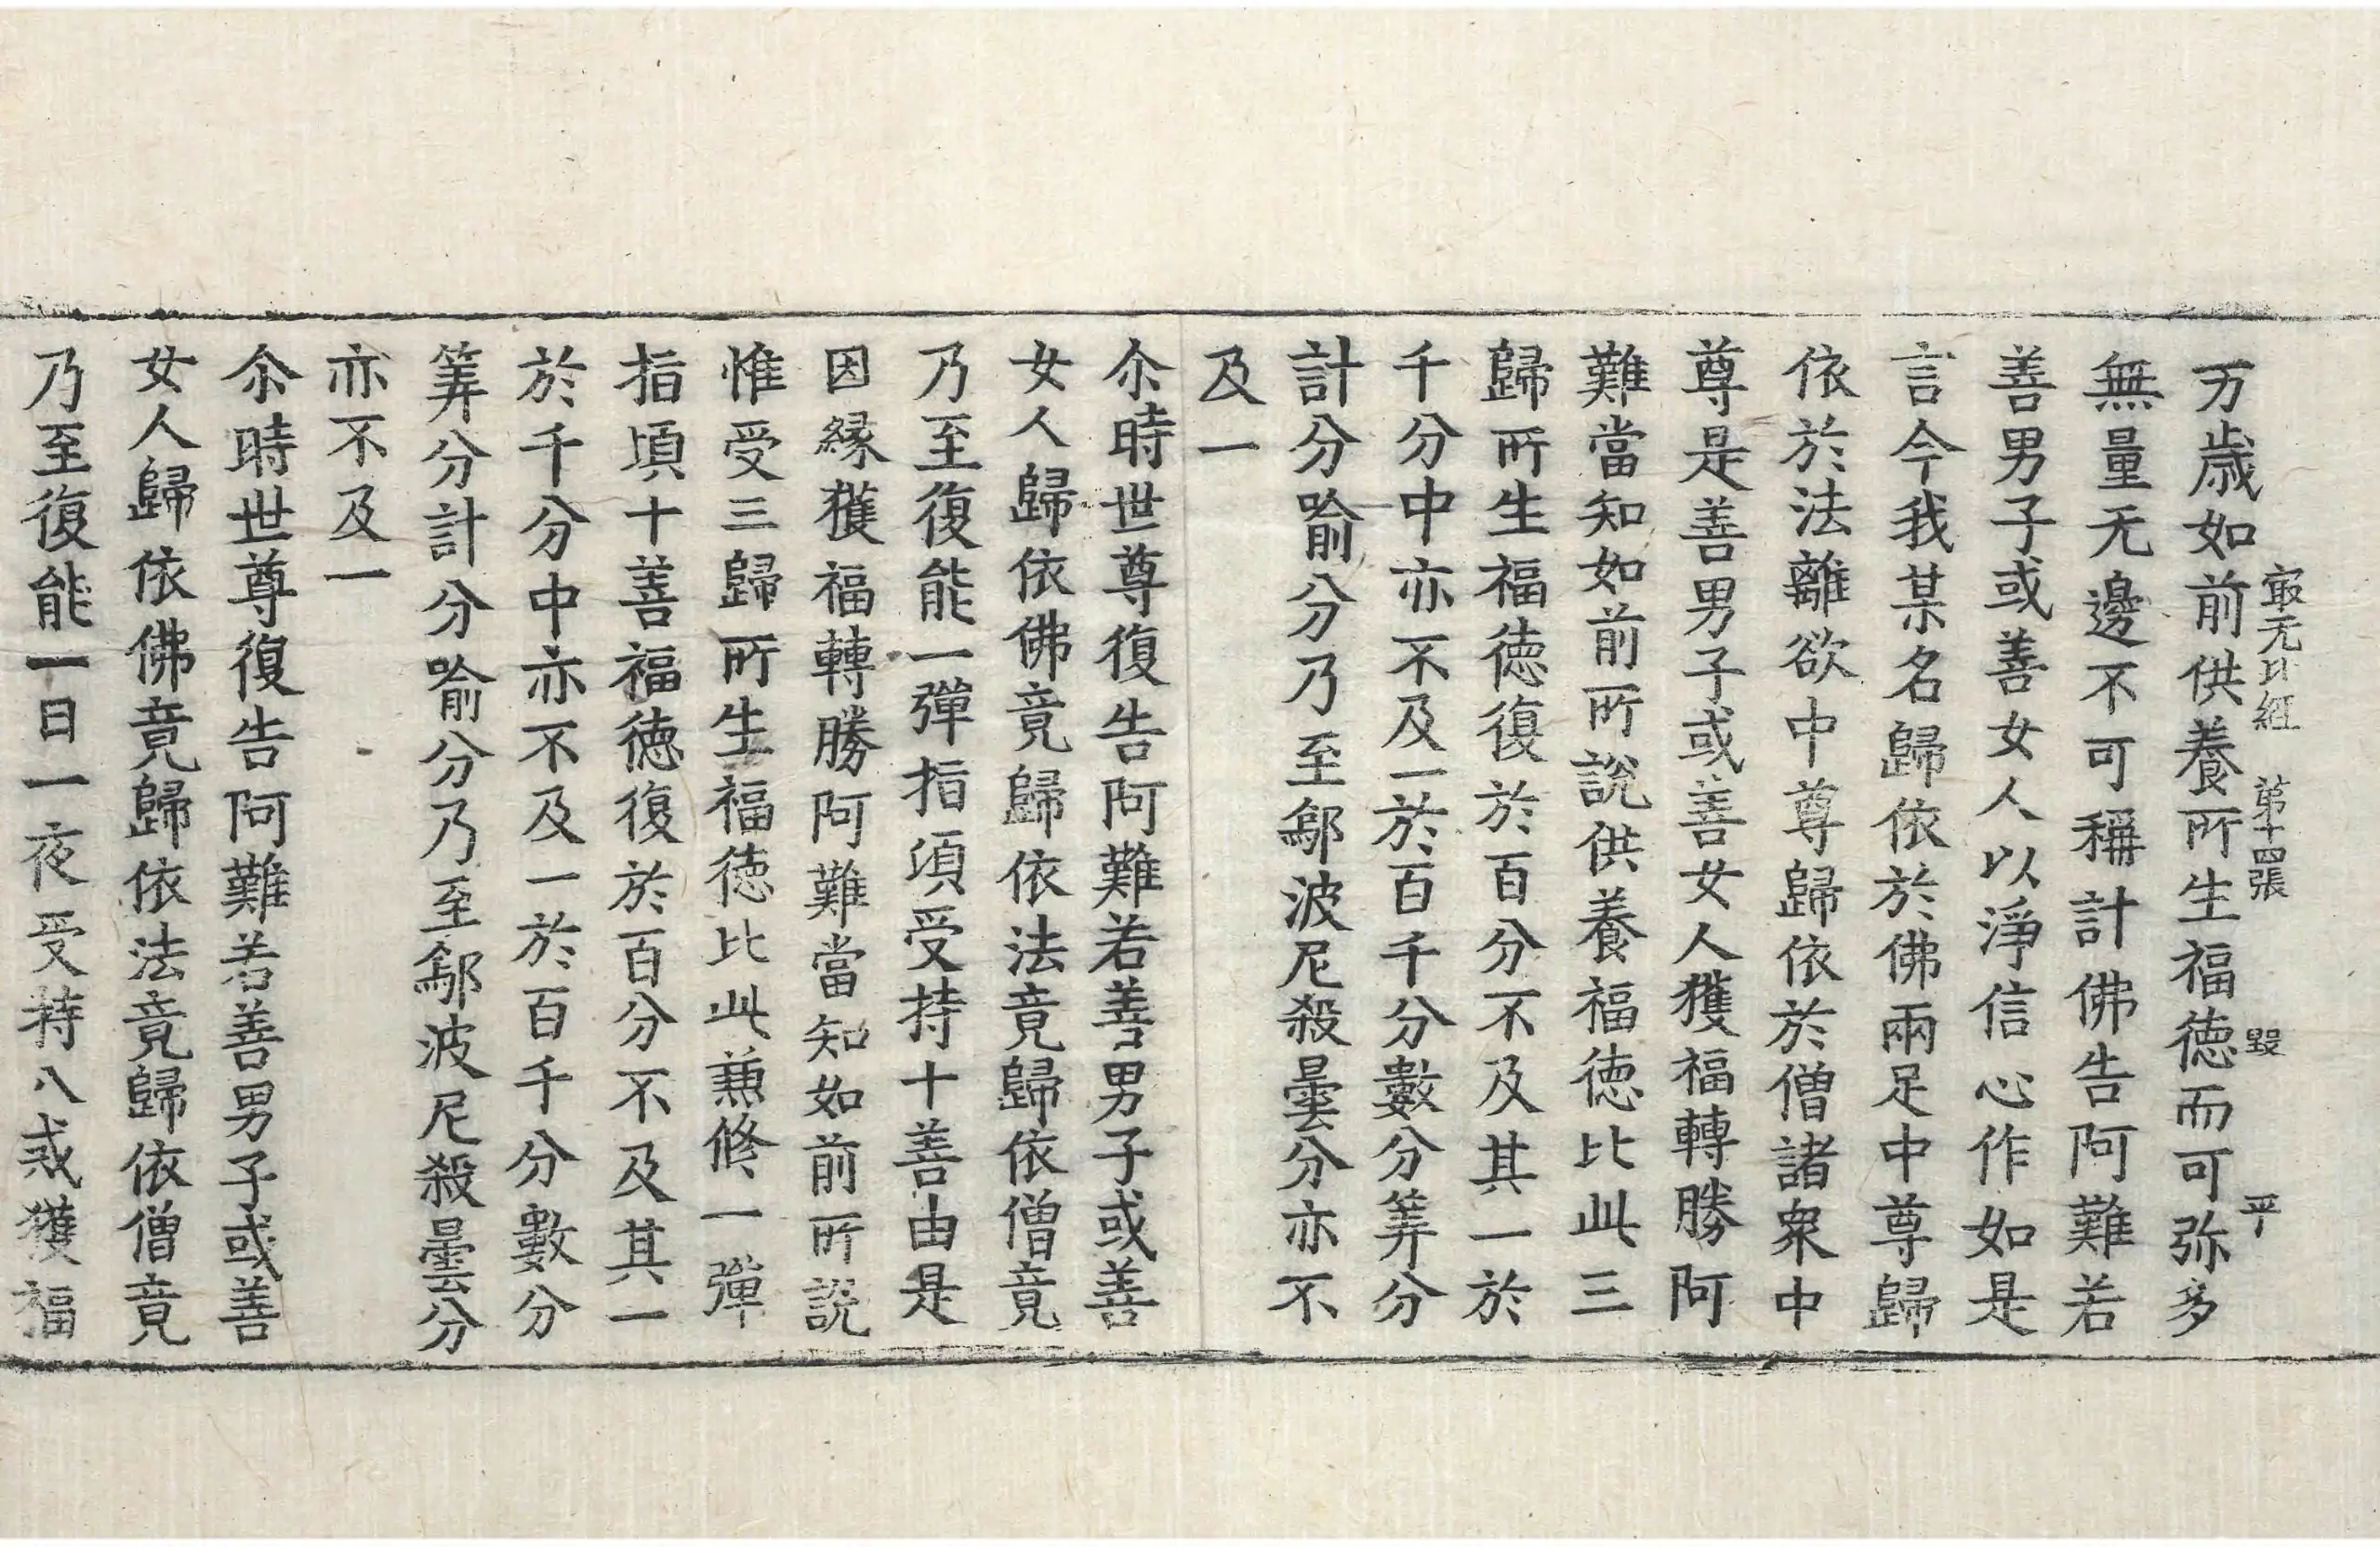 万歳如前供養所生福徳而可弥多
㝡无比經 第十四張 毀 平
無量无邊不可稱計佛告阿難若
善男子或善女人以淨信心作如是
言今我某名歸依於佛兩足中尊歸
依於法離欲中尊歸依於僧諸衆中
尊是善男子或善女人獲福轉勝阿
難當知如前所說供養福徳比此三
歸所生福徳復於百分不及其一於
千分中亦不及一於百千分數分筭分
計分喻分乃至鄔波尼殺曇分亦不
及一
尒時世尊復告阿難若善男子或善
女人歸依佛竟歸依法竟歸依僧竟
乃至復能一彈指湏受持十善由是
因縁獲福轉勝阿難當知如前所說
惟受三歸所生福徳比此兼修一彈
指頃十善福徳復於百分不及其一
於千分中亦不及一於百千分數分
筭分計分喻分乃至鄔波尼殺曇分
亦不及一
尒時世尊復告阿難若善男子或善
女人歸依佛竟歸依法竟歸依僧竟
乃至復能一日一夜受持八戒獲福